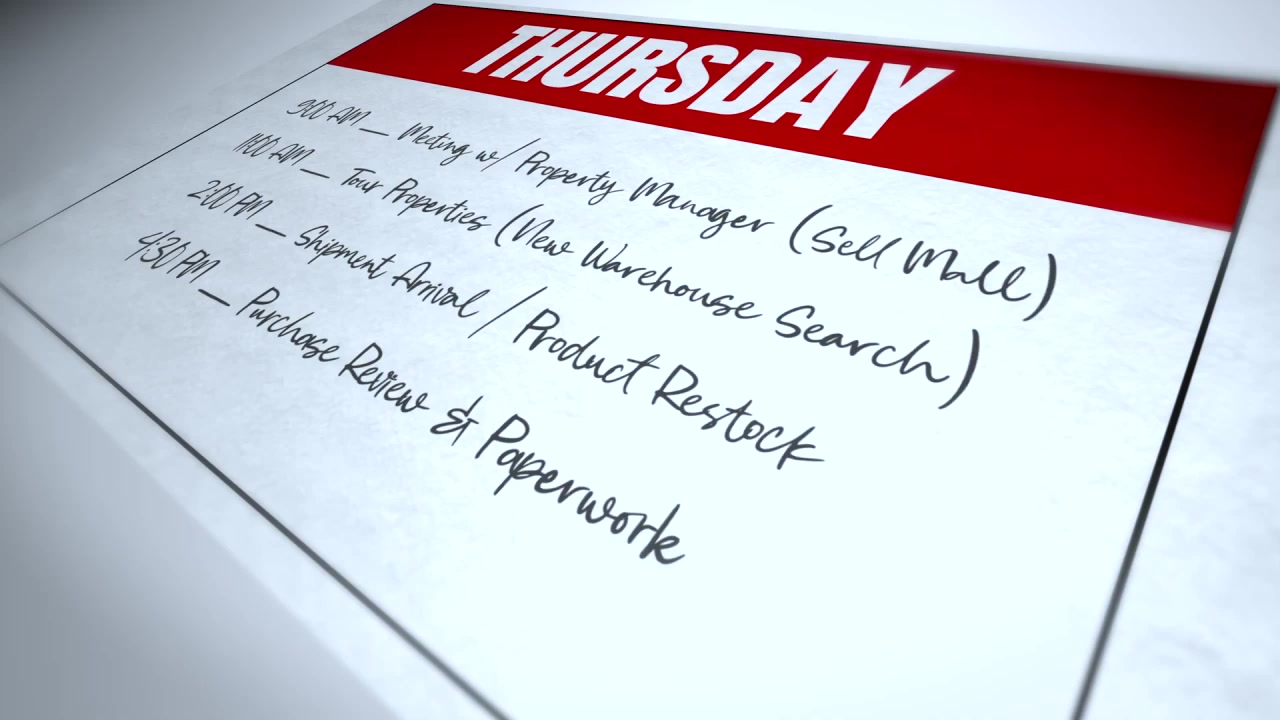 THURSDAY
9:00 AM — Meeting w/ Property Manager (Sell Mall)
11:00 AM — Tour Properties (New Warehouse Search)
2:00 PM — Shipment Arrival / Product Restock
4:30 PM — Purchase Review & Paperwork